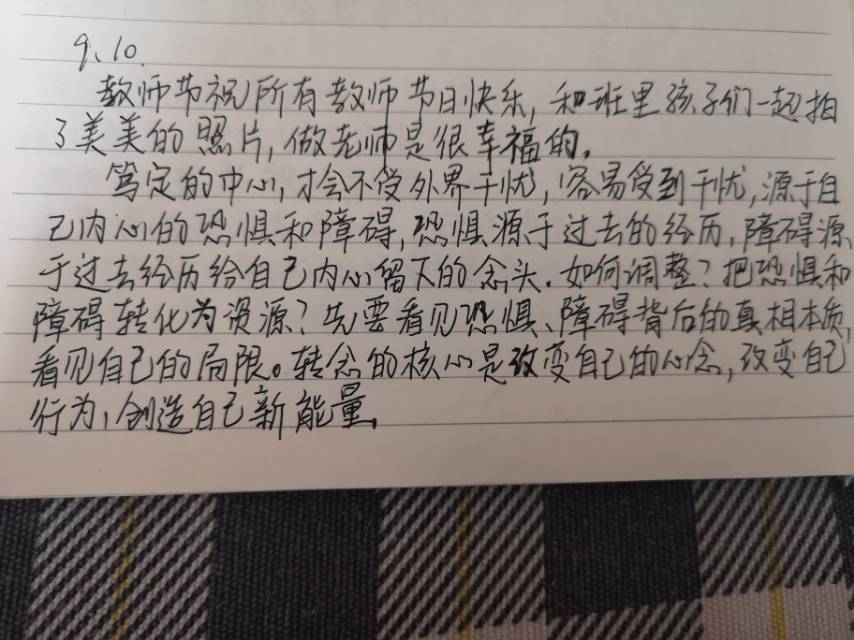 9、10.
教师节祝所有教师节日快乐,和班里孩子们一起拍
了美美的照片,做老师是很幸福的。
笃定的中心,才会不受外界干忧,容易受到干忧,源于自
己内心的恐惧和障碍,恐惧源于过去的经历,障碍源
于过去经历给自己内心留下的念头.如何调整?把恐惧和
障碍转化为资源?先要看见恐惧、障碍背后的真相本质,
看见自己的局限。转念的核心是改变自己的心念,改变自己
行为,创造自己新能量,